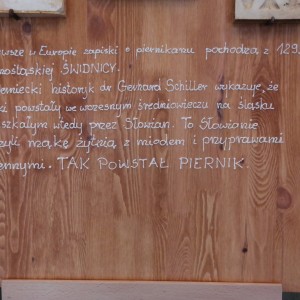 usze w Europie zapiski o piernikarzu pochodzą z 129
nośląskiej ŚWIDNICY.
emiecki historyk dr Gerhard Schiller wykazuje, że
ki powstały we wczesnym średniowieczu na śląsku
szkałym wtedy przez Słowian. To Słowianie
zyli mąkę żytnią z miodem i przyprawami
ennymi. TAK POWSTAŁ PIERNIK.